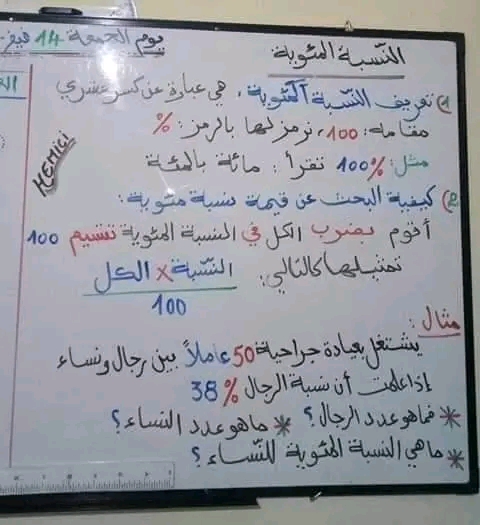 يوم الجمعة 14 فيفر
النّسبة المئوية
1) تعريف النّسبة المئوية، هي عبارة عن كسر عشري
مقامه: 100، نرمز لها بالرمز: %
مثل: 100% تقرأ: مائة بالمئة
HEMICI
2) كيفية البحث عن قيمة نسبة مئوية:
أقوم بضرب الكل في النسبة المئوية تقسيم 100
تمثيلها كالتالي:
النّسبة x الكل
100
مثال:
يشتغل بعيادة جراحية 50 عاملاً بين رجال ونساء
إذا علمت أن نسبة الرجال 38%
* فماهو عدد الرجال؟ * ماهو عدد النساء؟
* ما هي النسبة المئوية للنّساء؟